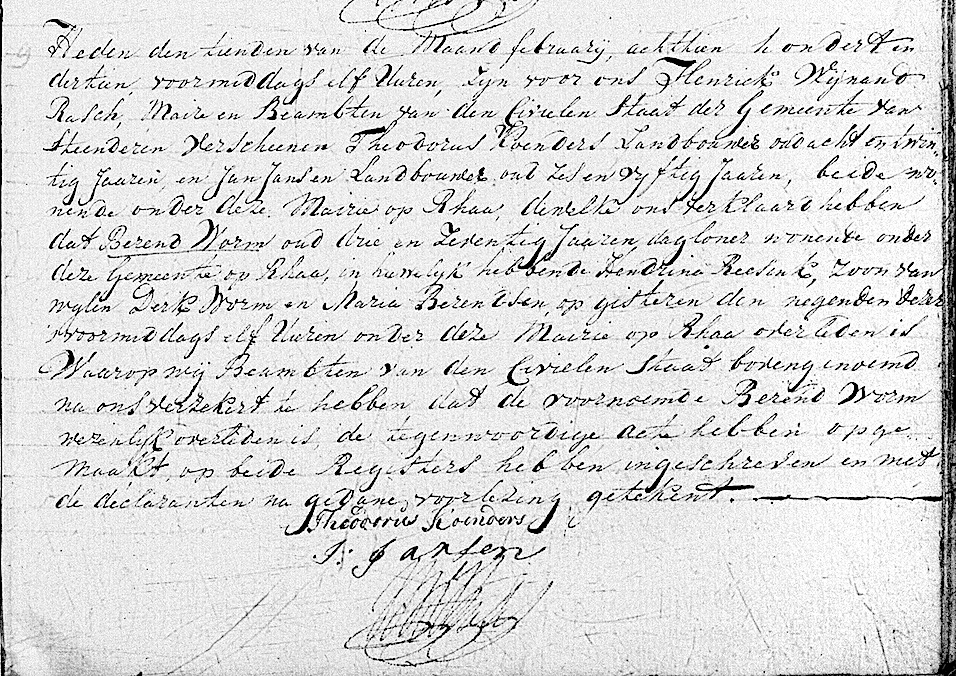 9
Heden den tienden van de Maand february, achthien hondert en
dertien, voormiddags elf Uuren, zyn voor ons Henrick Wijnand
Rasch, Maire en Beambten van den Civielen Staat der Gemeente van
Steenderen verscheenen Theodorus Koenders Landbouwer oud acht en twin„
tig Jaaren, en Jan Jansen Landbouwer oud zes en vyftig Jaaren, beide wo„
nende onder deze Mairie op Rhaa, dewelke ons verklaard hebben
dat Berend Worm oud drie en Zeventig Jaaren, dagloner wonende onder
deze Gemeente op Rhaa, in huwelyk hebbende Hendrina Reesink, zoon van
wylen Derk Worm en Maria Berendsen, op gisteren den negenden dezer
voormiddags elf Uuren onder deze Mairie op Rhaa overleden is
Waarop wij Beambten van den Civielen Staat bovengenoemd
na ons verzekert te hebben dat de voornoemde Berend Worm
wezenlyk overleden is de tegenwoordige acte hebben opge„
maakt, op beide Registers hebben ingeschreven en met
de declaranten na gedane voorlezing getekent.
Theodorus Koenders
J: Jansen